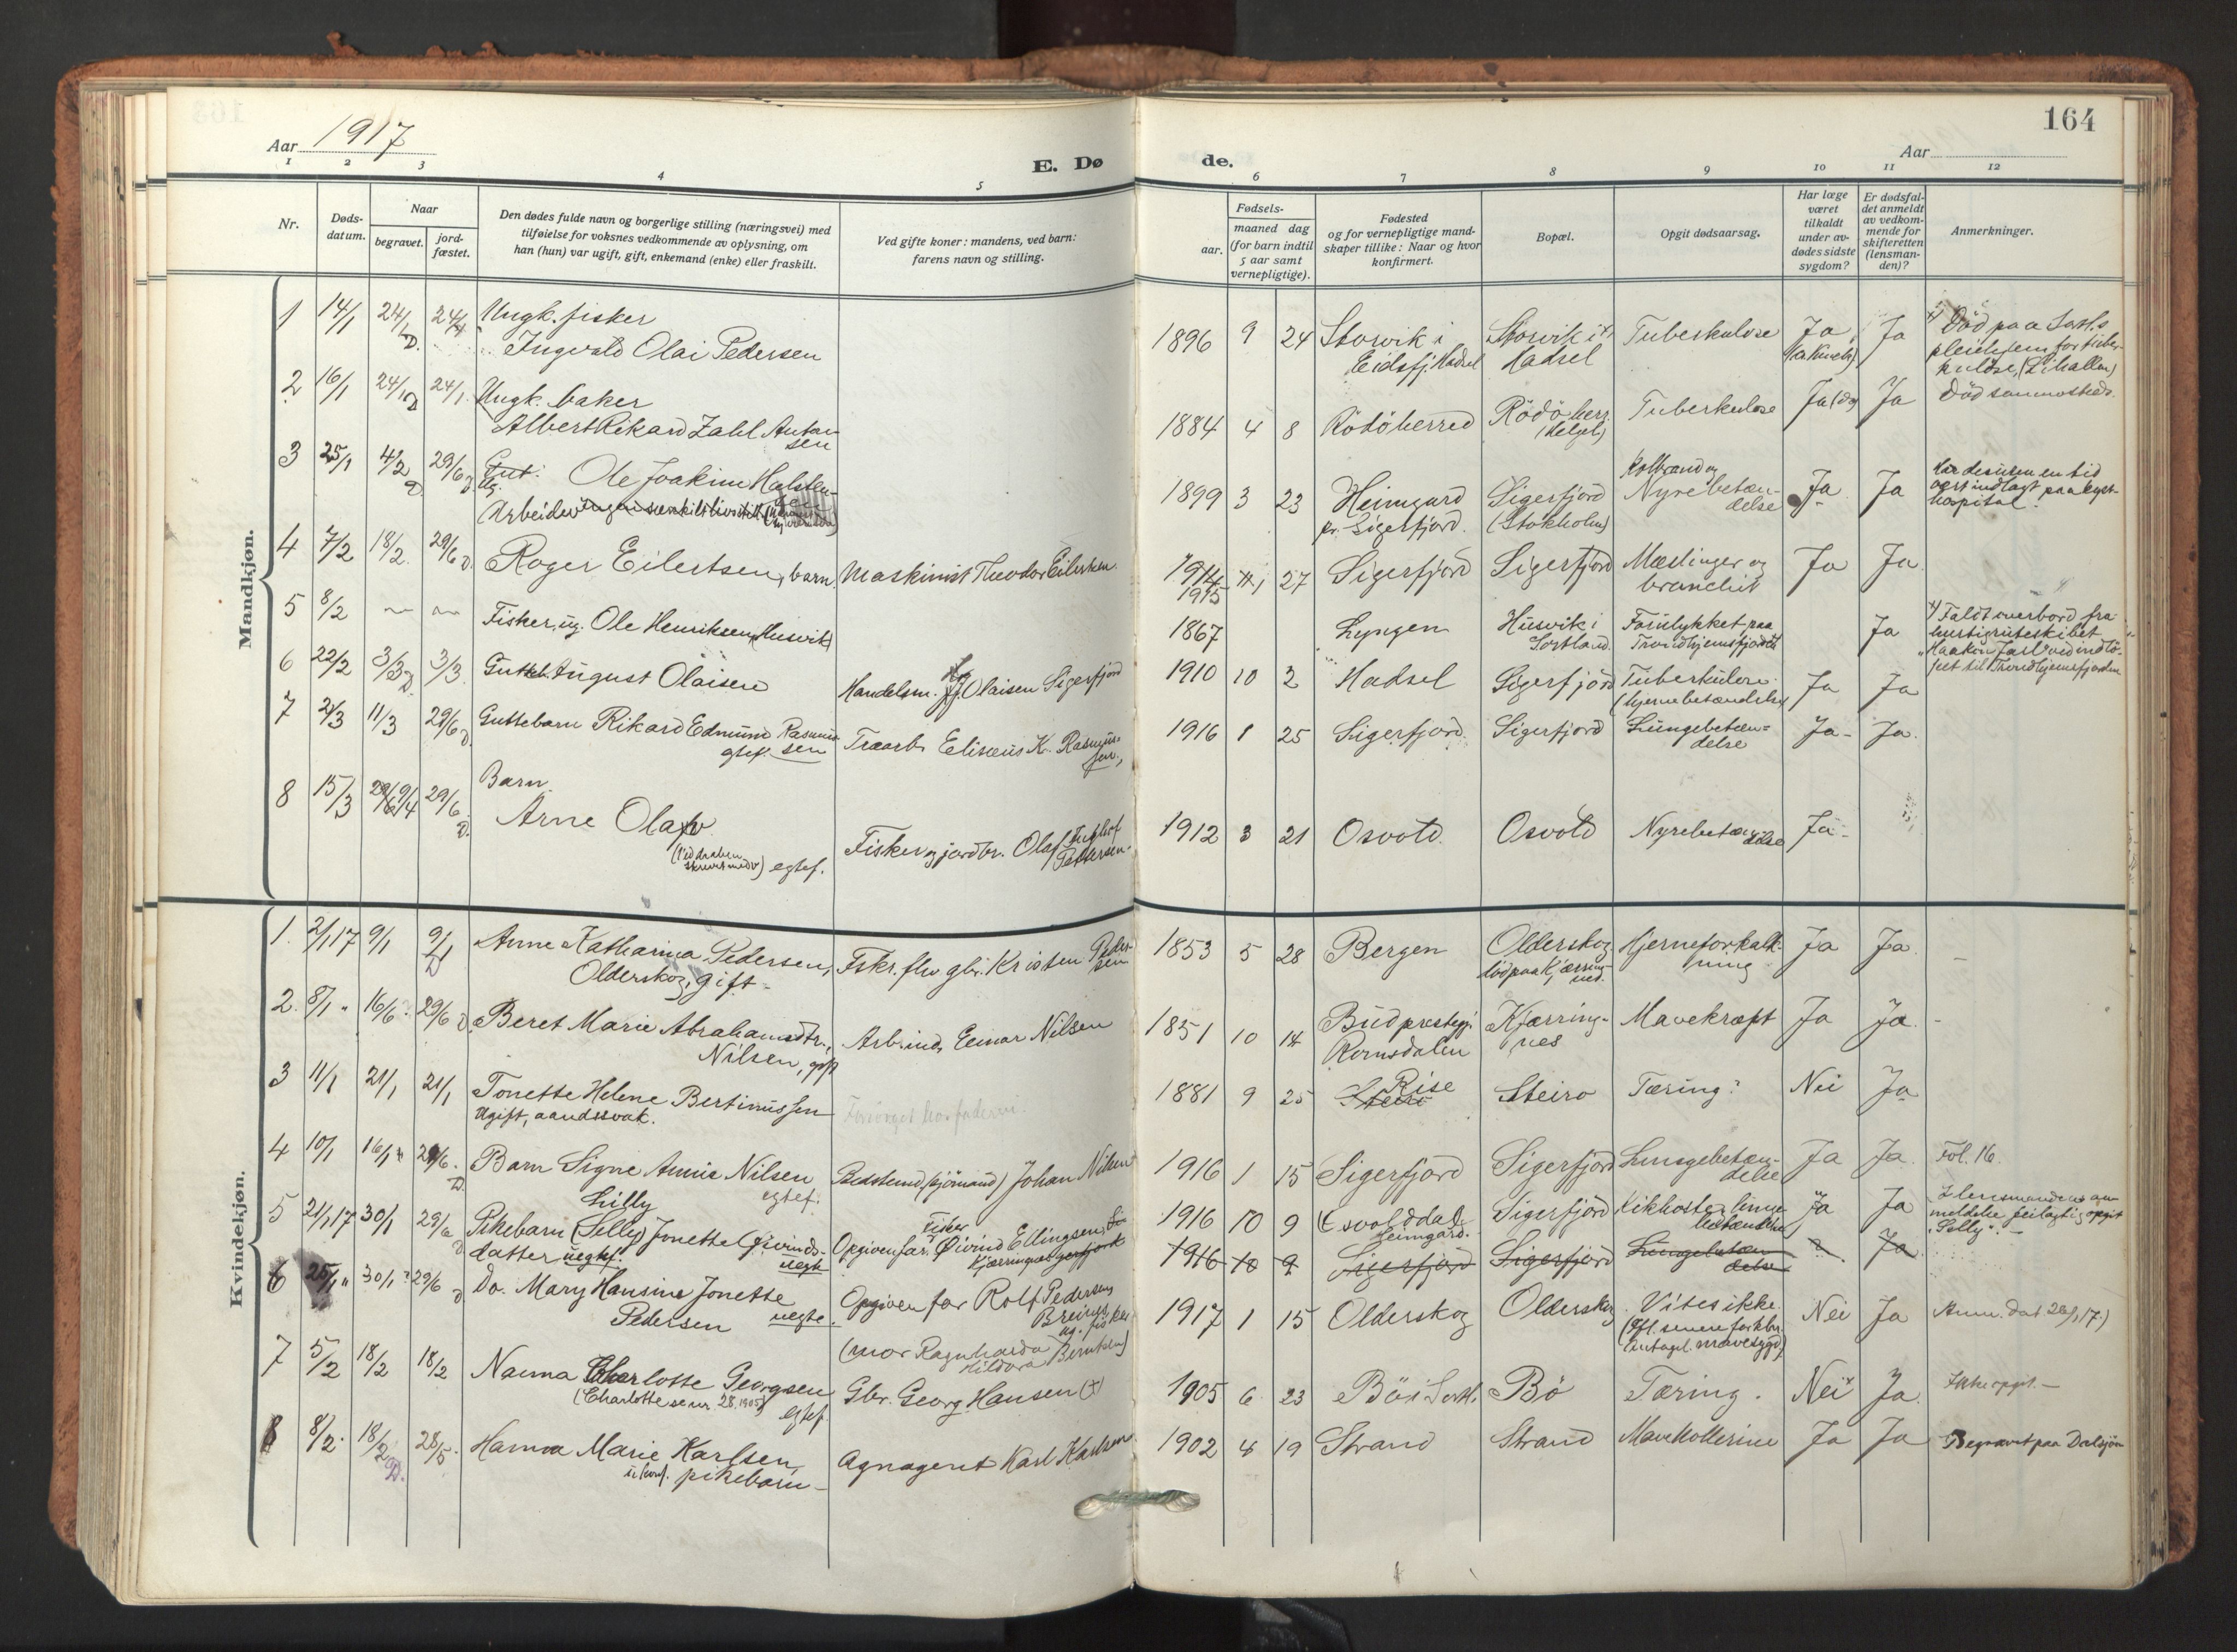 164
Aar 1917
E. Dø
de.
Aar
1 2 3 4 5 6 7 8 9 10 11 12
Nr.
Døds-
datum.
Naar
begravet.
jord-
fæstet.
Den dødes fulde navn og borgerlige stilling (næringsvei) med
tilføielse for voksnes vedkommende av oplysning, om
han (hun) var ugift, gift, enkemand (enke) eller fraskilt.
Ved gifte koner: mandens, ved barn:
farens navn og stilling.
Fødsels-
aar.
maaned dag
(for barn indtil
5 aar samt
vernepligtige).
Fødested
og for vernepligtige mand-
skaper tillike: Naar og hvor
konfirmert.
Bopæl.
Opgit dødsaarsag.
Har læge
været
tilkaldt
under av-
dødes sidste
sygdom?
Er dødsfal-
det anmeldt
av vedkom-
mende for
skifteretten
(lensman-
den)?
Anmerkninger.
Mandkjøn.
1 14/1 24/1 D. 24/1 Ungk. fisker
Ingvald Olai Pedersen
1896 9 24 Storvik i
Eidsfj. Hadsel
Storvik i
Hadsel
Tuberkulose Ja Ja
Död paa
pleiehjem for tuber-
kulose,
2 16/1 24/1 D 24/1. Ungk. baker
Albert Rikard Zahl Anton-
sen
1884 4 8 Rödöherred Rödö herr.
(Helgel.)
Tuberkulose Ja Ja Död sammesteds.
3 25/1 4/2 D 29/6 D. Gut: Ole Joakim Halsten-
sen
Ug.
Arbeider
1899 3 23 Heimgard
pr. Sigerfjord.
Sigerfjord
(Stokholm)
Kolbrand og
Nyrebetæn-
delse
Ja Ja
Har desuten en tid
vært indlagt paa kyst-
hospital.
4 7/2 18/2. 29/6 D. Roger Eilertsen, barn. Maskinist Theodor Eilertsen.
1914
1915 1 27 Sigerfjord Sigerfjord Mæslinger og
bronchit
Ja Ja.
5 8/2 — — Fisker, ug. Ole Henriksen (Husvik)
1867 Lyngen Husvik i
Sortland.
Forulykket paa
Trondhjemsfjorden
Ja
x) Faldt overbord fra
hurtigruteskibet
"Haakon Jarl" ved indlö-
pet til Trondhjemsfjorden
6 22/2 3/3 D. 3/3. Gutteb. August Olaisen Handelsm. Olaisen Sigerfjord
1910 10 2 Hadsel Sigerfjord Tuberkulose.
(hjernebetændelse)
Ja Ja
7 2/3 11/3 29/6 D. Guttebarn Rikard Edmund Rasmus-
sen
egtef.
Træarb. Eliseus K. Rasmus-
sen,
1916 1 25 Sigerfjord. Sigerfjord Lungebetæn-
delse
Ja- Ja.
8 15/3 9/4 29/6 D. Barn.
Arne Olaf
(Ved daaben
skrevet med v) egtef.
Fisker og jordbr. Olaf
Pettersen.
1912 3 21 Osvold. Osvold Nyrebetæn-
delse
Ja-
Kvindekjøn.
1. 2/1 17 9/1 9/1 D Anne Katharina Pedersen,
Olderskog, gift-
Fskr. flv gbr. Kristen Peder-
sen
1853 5 28 Bergen Olderskog
död paa Kjærring-
nes.
Hjerneforkalk-
ning
Ja Ja. —
2. 8/1 " 16/6 ? 29/6 D Beret Marie Abrahamsdtr.,
Nilsen, gift
Arb.ind. Einar Nilsen
1851 10 14 Bud prestegj.
Romsdalen
Kjærring-
nes
Mavekræft Ja Ja. -
3 11/1 21/1 21/1 Tonette Helene Bertinussen
Ugift, aandssvak.
Forsörget hos
1881 9 25 Rise
Steiro
Steiro Tæring? Nei Ja
4 10/1 16/1 29/6. D. Barn Signe Annie Nilsen
egtef.
Bedstemd (sjömand) Johan Nilsen
1916 1 15 Sigerfjord Sigerfjord Lungebetæn-
delse
Ja Ja. Fol. 16.
5 21/1 17 30/1 29/6 D Lilly
Pikebarn (Selly) Jonette Øivinds-
datter uegtef.
uegte
Fisker
Opgiven far: Øivind Ellingsen,
Kjærringnes
1916 10 9 Osvolddal
Heimgard.
Sigerfjord Kikhoste, lunge-
betændelse
Ja Ja
I lensmandens an-
meldelse feilagtig opgit
"Selly". —
1916 10 9 Sigerfjord Sigerfjord Lungebetæn-
delse
?. Ja
6 25/1 " 30/1 ? 29/6 D Do. Mary Hansine Jonette
Pedersen uegte
Opgiven far Rolf Pedersen
Breines,
ug. fisker
(mor Ragnharda
Hildora Berntsen)
1917 1 15 Olderskog Olderskog. Vites ikke.
Nei Ja
7 5/2 18/2 18/2 Nanna Charlotte Georgsen
(Charlotte se nr. 28, 1905) egtef.
Gbr. Georg Hansen (+)
1905 6 23 Bö i Sortl. Bö Tæring. Nei Ja. Ikke opgit.—
8 8/2. 18/2 D. 28/5. Hanna Marie Karlsen,
ukonf. pikebarn-
Agnagent Karl Karlsen
1902 4 19 Strand Strand Mavekollerine Ja Ja Begravet paa Dalsjöen